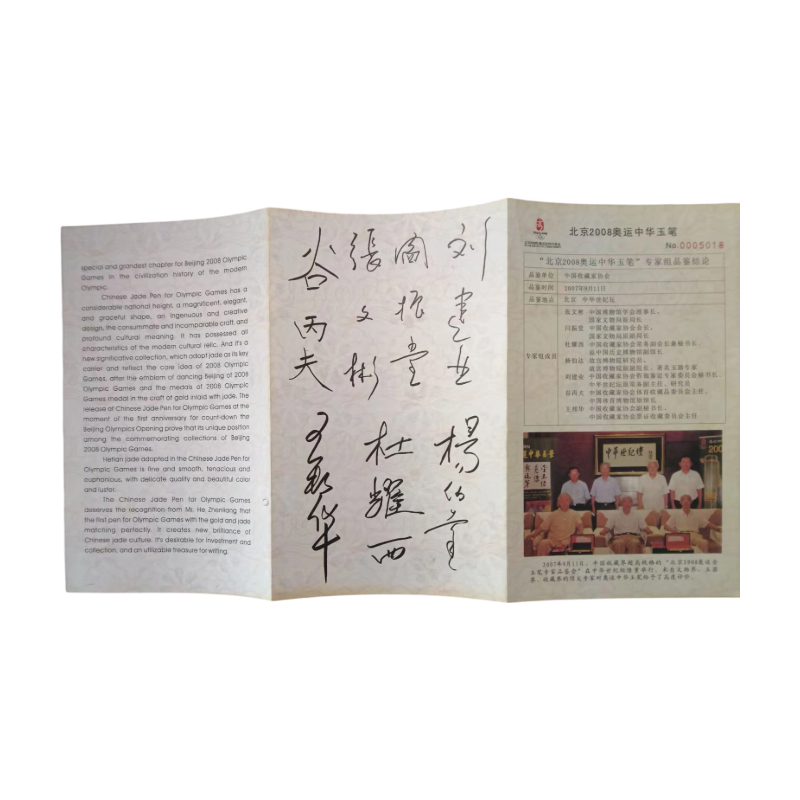 special and grandest chapter for Beijing 2008 Olympic
Games in the civilization history of the modern
Olympic.
Chinese Jade Pen for Olympic Games has a
considerable national height, a magnificent, elegant,
and graceful shape, an ingenuous and creative
design, the consummate and incomparable craft, and
profound cultural meaning. It has possessed all
characteristics of the modern cultural relic. And it's a
new significative collection, which adopt jade as its key
carrier and reflect the core idea of 2008 Olympic
Games, after the emblem of dancing Beijing of 2008
Olympic Games and the medals of 2008 Olympic
Games medal in the craft of gold inlaid with jade. The
release of Chinese Jade Pen for Olympic Games at the
moment of the first anniversary for count-down the
Beijing Olympics Opening prove that its unique position
among the commemorating collections of Beijing
2008 Olympic Games.
Hetian jade adopted in the Chinese Jade Pen for
Olympic Games is fine and smooth, tenacious and
euphonious, with delicate quality and beautiful color
and luster.
The Chinese Jade Pen for Olympic Games
deserves the recognition from Ms. He Zhenliang that
the first pen for Olympic Games with the gold and jade
matching perfectly. It creates new brilliance of
Chinese jade culture. It's desirable for investment and
collection, and an utilizable treasure for writing.
刘建业
杨伯达
阎振堂
杜耀西
張文彬
谷丙夫
王
华
北京2008奥运中华玉笔
No.0005018
“北京2008奥运中华玉笔”专家组品鉴结论
品鉴单位 中国收藏家协会
品鉴时间 2007年8月11日
品鉴地点 北京 中华世纪坛
专家组成员
张文彬 中国博物馆学会理事长、
国家文物局原局长
闫振堂 中国收藏家协会会长、
国家文物局原副局长
杜耀西 中国收藏家协会常务副会长兼秘书长、
原中国历史博物馆副馆长
杨伯达 故宫博物院研究员、
故宫博物院原副院长、著名玉器专家
刘建业
中华世纪坛
谷丙夫
中国体育博物馆原馆长
中国收藏家协会副秘书长、
中華世纪壇
2007年8月11日，中国收藏界超高规格的“北京2008奥运中华
玉笔专家品鉴会”在中华世纪坛隆重举行，来自文物界、玉器
界、收藏界的顶尖专家对奥运中华玉笔给予了高度评价。